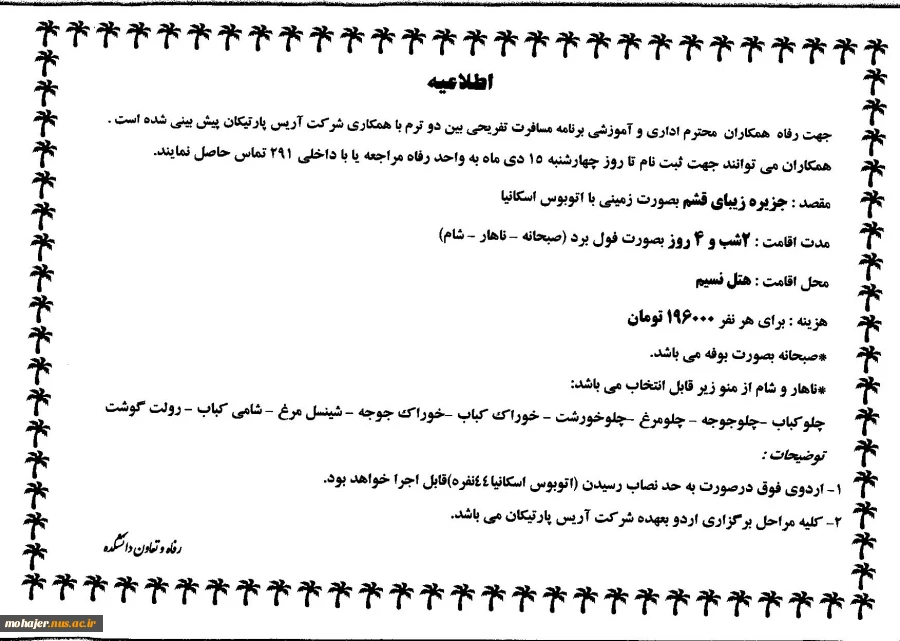 اطلاعیه
جهت رفاه همکاران محترم اداری و آموزشی برنامه مسافرت تفریحی بین دو ترم با همکاری شرکت آریس پارتیکان پیش بینی شده است .
همکاران می توانند جهت ثبت نام تا روز چهارشنبه ۱۵ دی ماه به واحد رفاه مراجعه یا با داخلی ۲۹۱ تماس حاصل نمایند.
مقصد : جزیره زیبای قشم بصورت زمینی با اتوبوس اسکانیا
مدت اقامت : ۲شب و ۴ روز بصورت فول برد (صبحانه – ناهار – شام)
محل اقامت : هتل نسیم
هزینه : برای هر نفر ۱۹۶۰۰۰ تومان
*صبحانه بصورت بوفه می باشد.
*ناهار و شام از منو زیر قابل انتخاب می باشد:
چلوکباب –چلوجوجه – چلومرغ –چلوخورشت – خوراک کباب –خوراک جوجه – شینسل مرغ – شامی کباب – رولت گوشت
توضیحات :
۱- اردوی فوق درصورت به حد نصاب رسیدن (اتوبوس اسکانیا۴۴نفره)قابل اجرا خواهد بود.
۲- کلیه مراحل برگزاری اردو بعهده شرکت آریس پارتیکان می باشد.
رفاه و تعاون دانشکده
mohajer.nus.ac.ir